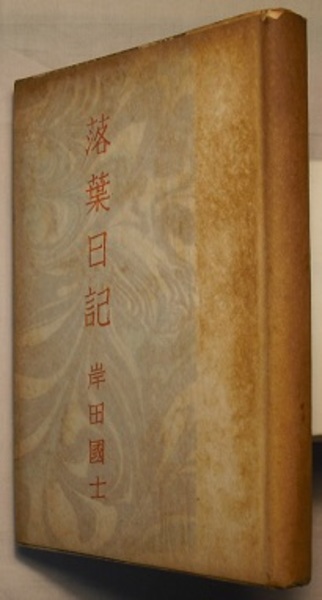 落葉日記
岸田國士